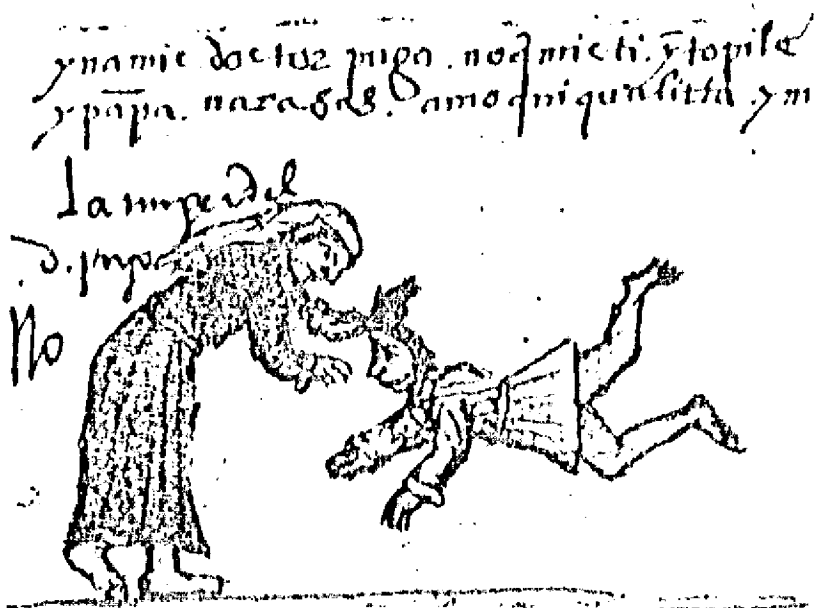 ynamic doctor puga . noq̃micti . ỹtopile
ypãpa . naragas . amo quiqualitta . ym
La muger del
d. puga
No